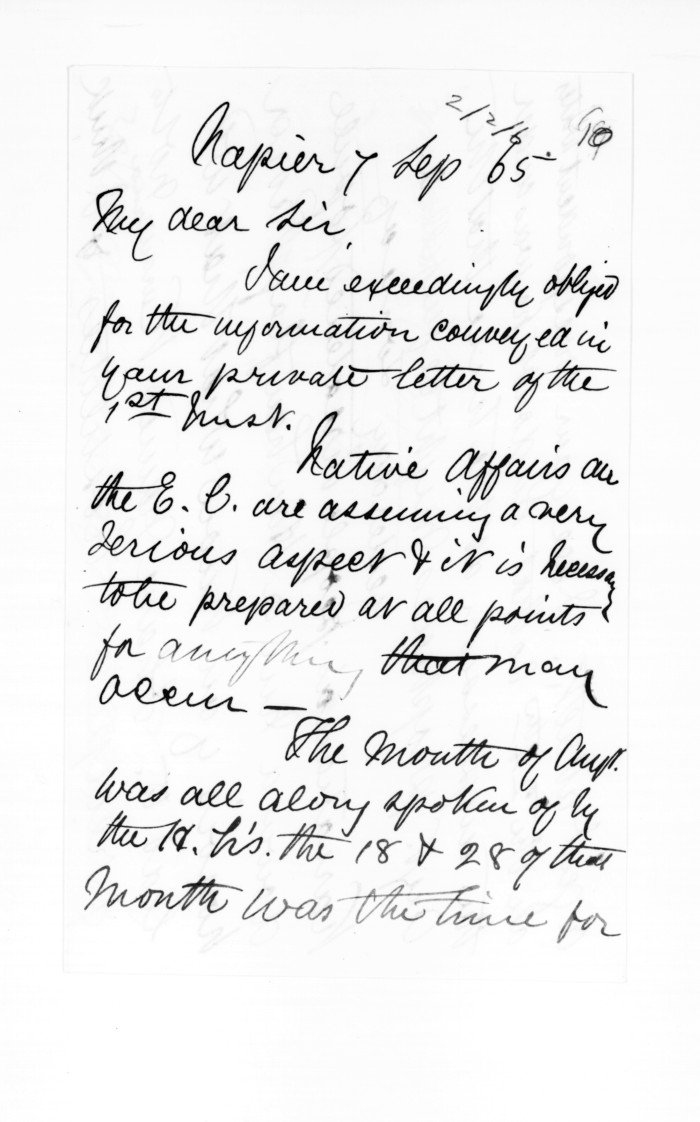 2/2/6
Napier 7 Sep 65
My dear Sir,
I am exceedingly obliged
for the information conveyed in
your private letter of the
1st Inst.
Native Affairs on
the E. C. are assuming a very
serious aspect & it is necessary
to be prepared at all points
for anything that may
occur —
The month of Augt.
was all along spoken of by
the H. H's. the 18 & 28 of that
month was the time for